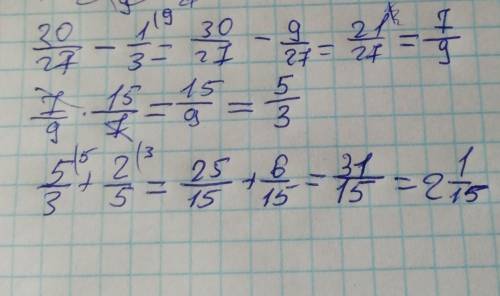 30/27 - 1/3 (9 = 30/27 - 9/27 = 21/27 = 7/9
7/9 · 15/7 = 15/9 = 5/3
5/3 (5 + 2/5 (3 = 25/15 + 6/15 = 31/15 = 2 1/15